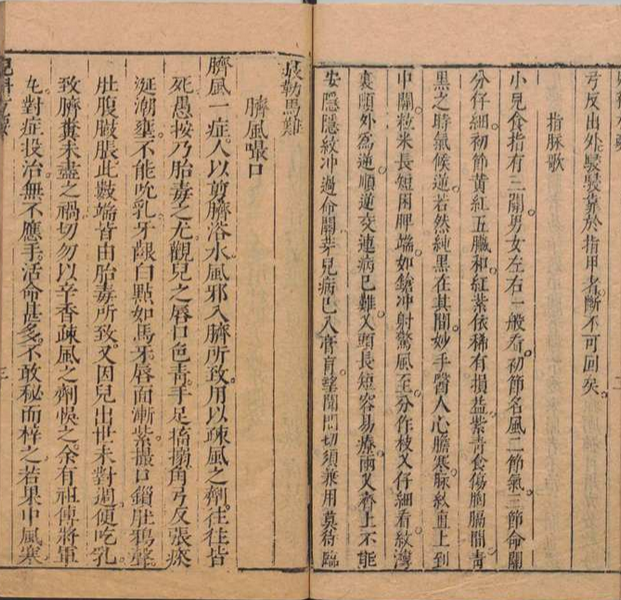 弓反出外駸駸靠於指甲者斷不可回矣
指脉歌
小兒食指有三關男女左右一般看初節名風二節氣三節命關
分仔細初節黃紅五臟和紅紫依稀有損益紫青食傷胸膈間青
黑之時氣候逆若然純黑在其間妙手醫人心膽寒脉紋直上到
中關粒米長短困脾端如鎗冲射驚風至分作枝又仔細看紋灣
裏順外為逆順逆交連病已難又頭長短容易療兩又齊上不能
安隱隱紋冲過命關芽兒病已入膏肓望聞問切須兼用莫待臨
崖勒馬難
臍風嘬口
臍風一症人以剪臍浴水風邪入臍所致用以疎風之劑往往皆
死愚按乃胎毒之尤觀兒之唇口色青手足搐搦角弓反張痰
涎潮壅不能吮乳牙齦白點如馬牙唇面漸紫撮口鎖肚鴉聲
肚腹䐜脹此數端皆由胎毒所致又因兒出世未對週便吃乳
致臍糞未盡之禍切勿以辛香疎風之劑悞之余有祖傳將軍
丸對症投治無不應手活命甚多不敢秘而梓之若果中風寒
三